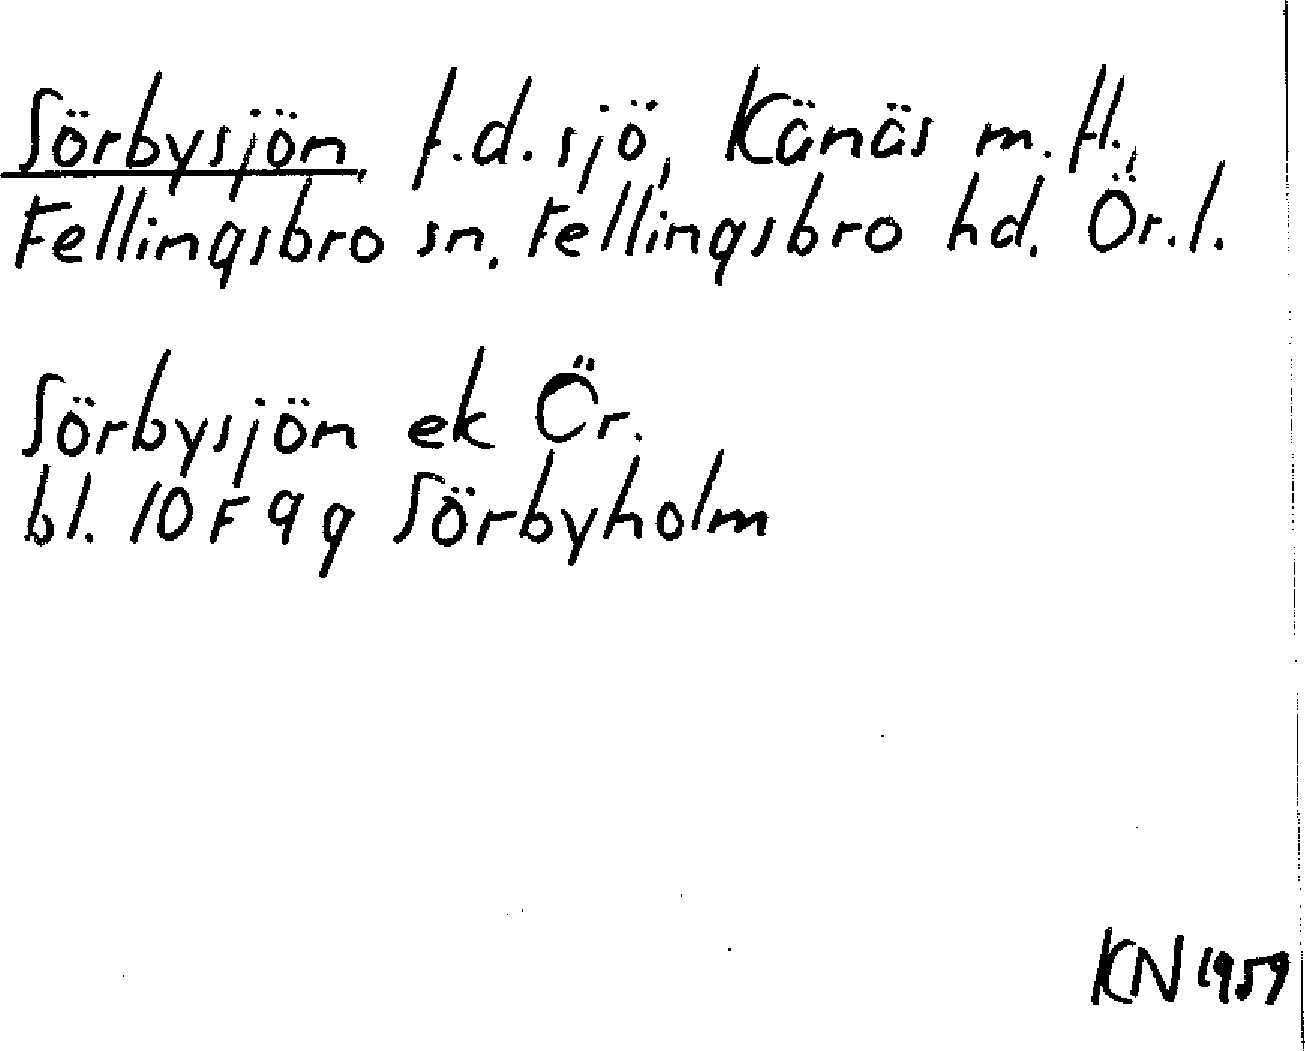 Sörbysjön, f.d. sjö, Känäs m.fl.,
Fellingsbro sn. Fellingsbro hd. Ör. l.
Sörbysjön ek Ör.
bl. 10 F 9 g Sörbyholm
KN 1959